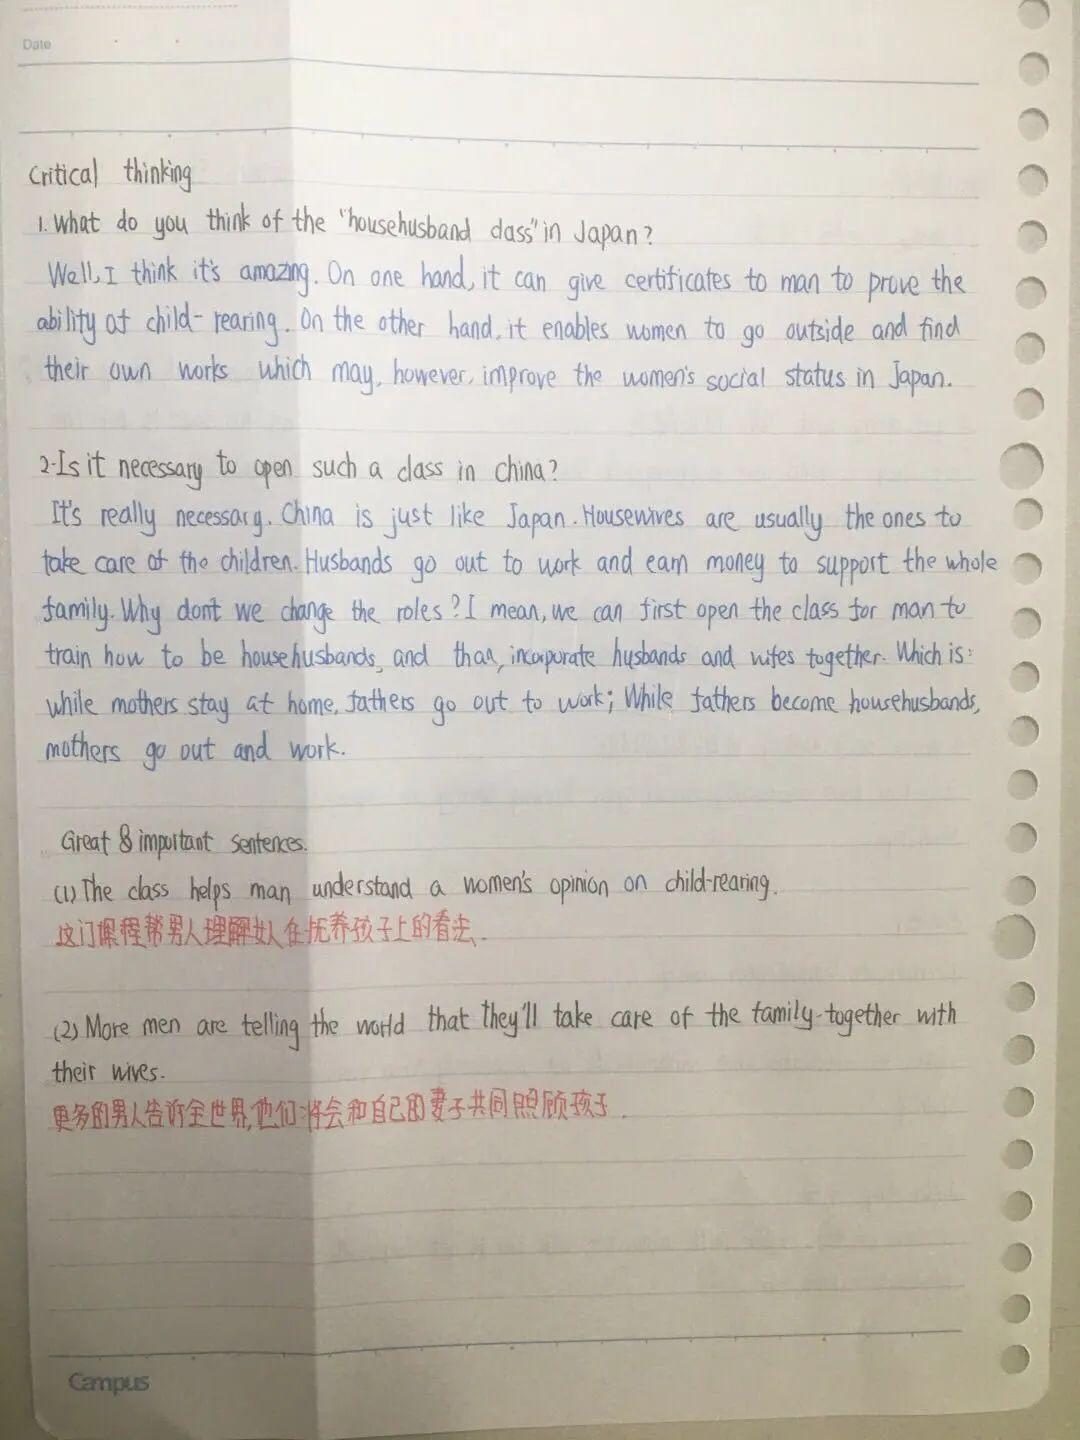 Date
Critical thinking
1. What do you think of the "househusband class" in Japan?
Well, I think it's amazing. On one hand, it can give certificates to man to prove the
ability of child-rearing. On the other hand, it enables women to go outside and find
their own works which may, however, improve the women's social status in Japan.
2. Is it necessary to open such a class in China?
It's really necessary. China is just like Japan. Housewives are usually the ones to
take care of the children. Husbands go out to work and earn money to support the whole
family. Why don't we change the roles? I mean, we can first open the class for man to
train how to be househusbands, and than, incorporate husbands and wifes together. Which is:
while mothers stay at home, fathers go out to work; While fathers become househusbands,
mothers go out and work.
Great & important sentences.
(1) The class helps man understand a women's opinion on child-rearing.
这门课程帮男人理解女人在抚养孩子上的看法.
(2) More men are telling the world that they'll take care of the family together with
their wives.
更多的男人告诉全世界,他们将会和自己的妻子共同照顾孩子.
Campus